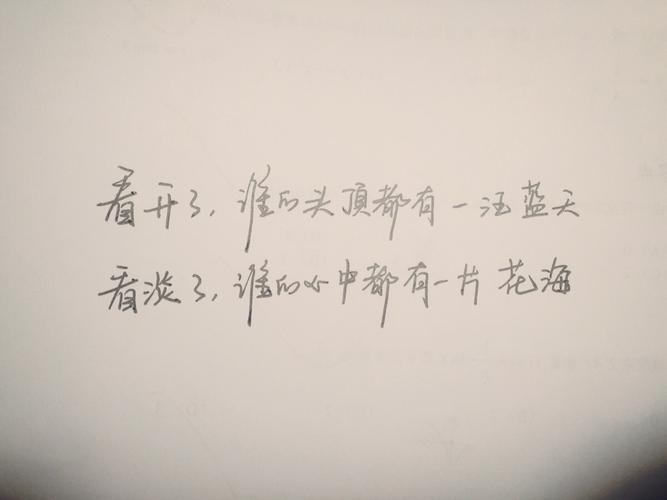 看开了,谁的头顶都有一汪蓝天
看淡了,谁的心中都有一片花海